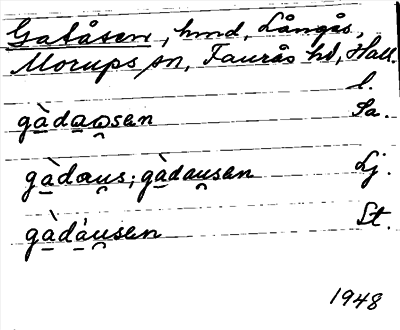 Gatåsen, hmd, Långås,
Morups sn, Faurås hd, Hall.
l.
gàdaosen Sa.
gàdaus; gàdausen Lj.
gàdàusen St.
1948